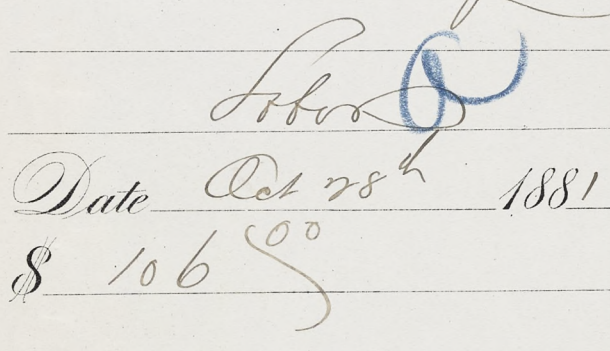 Labor
Date Oct 28th 1881
$ 106 00